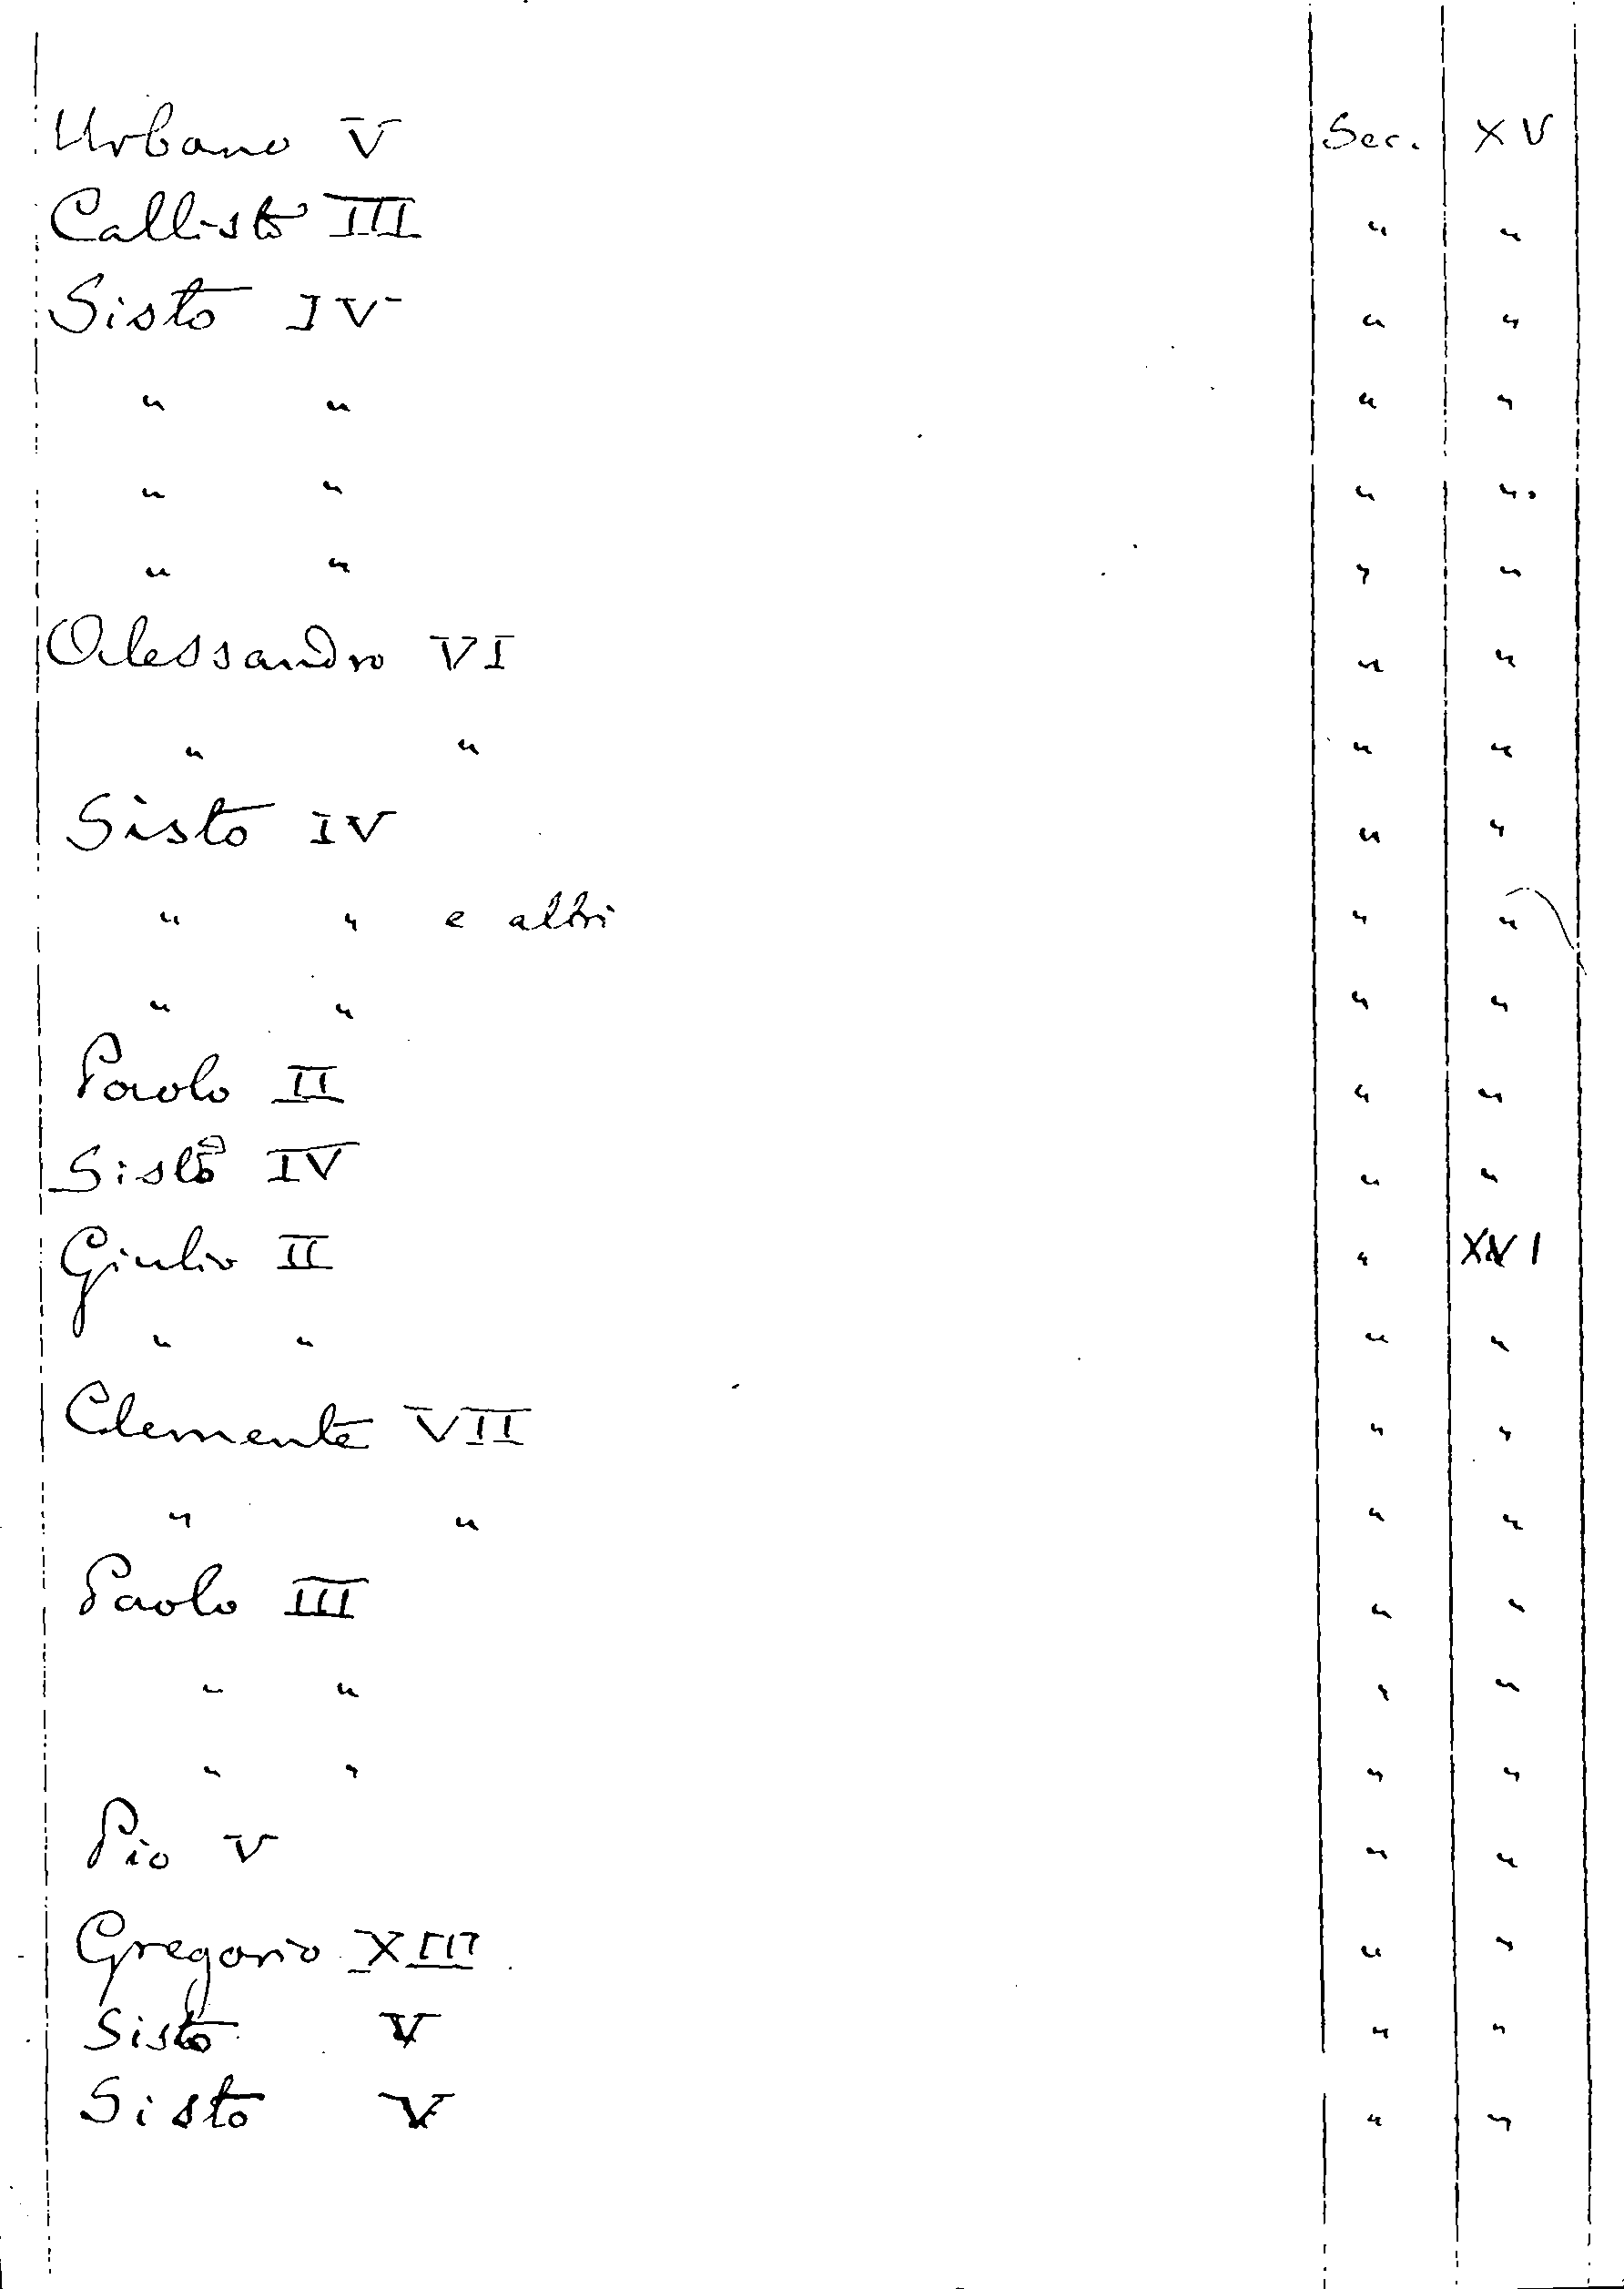 Urbano V Sec. XV
Callisto III " "
Sisto IV " "
" " " "
" " " ".
" " " "
Alessandro VI " "
" " " "
Sisto IV " "
" " e altri " "
" " " "
Paolo II " "
Sisto IV " "
Giulio II " XVI
" " " "
Clemente VII " "
" " " "
Paolo III " "
" " " "
" " " "
Pio V " "
Gregorio XIII " "
Sisto V " "
Sisto V " "